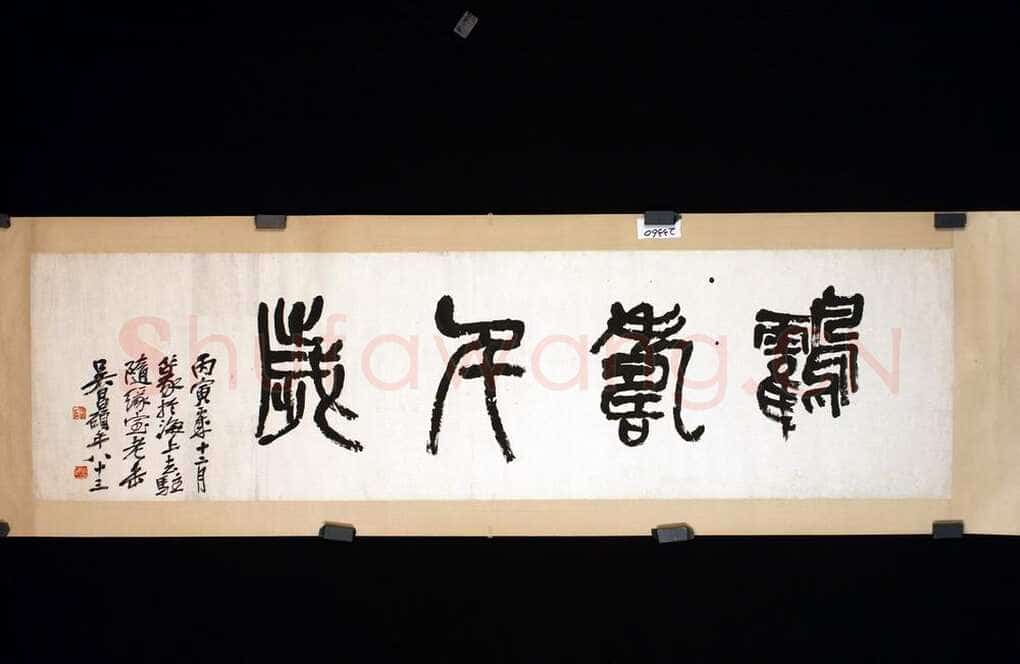 鶴壽千歲
丙寅年十二月
篆於海上去駐
隨緣室老缶
吳昌碩年八十三
23360
Shufawang.CN